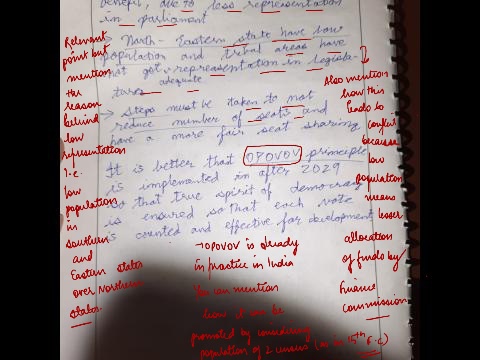 benefit, due to less representation
in parliament
→ North-Eastern state have low
population and tribal areas have
not got representation in legisla-
adequate
tures
→ Steps must be taken to not
reduce number of seats and
have a more fair seat sharing
It is better that OPOVOV principle
is implemented in after 2029
so that true spirit of democracy
is ensured so that each vote
is counted and effective for development
Relevant
point but
mention
the
reason
behind
low
representation
i.e.
low
population
in
southern
and
Eastern states
over Northern
states.
Also mention
how this
leads to
conflict
because
low
population
means
lesser
allocation
of funds by
finance
commission
→ OPOVOV is already
in practice in India
You can mention
how it can be
promoted by considering
population of 2 census (as in 15th F.C)